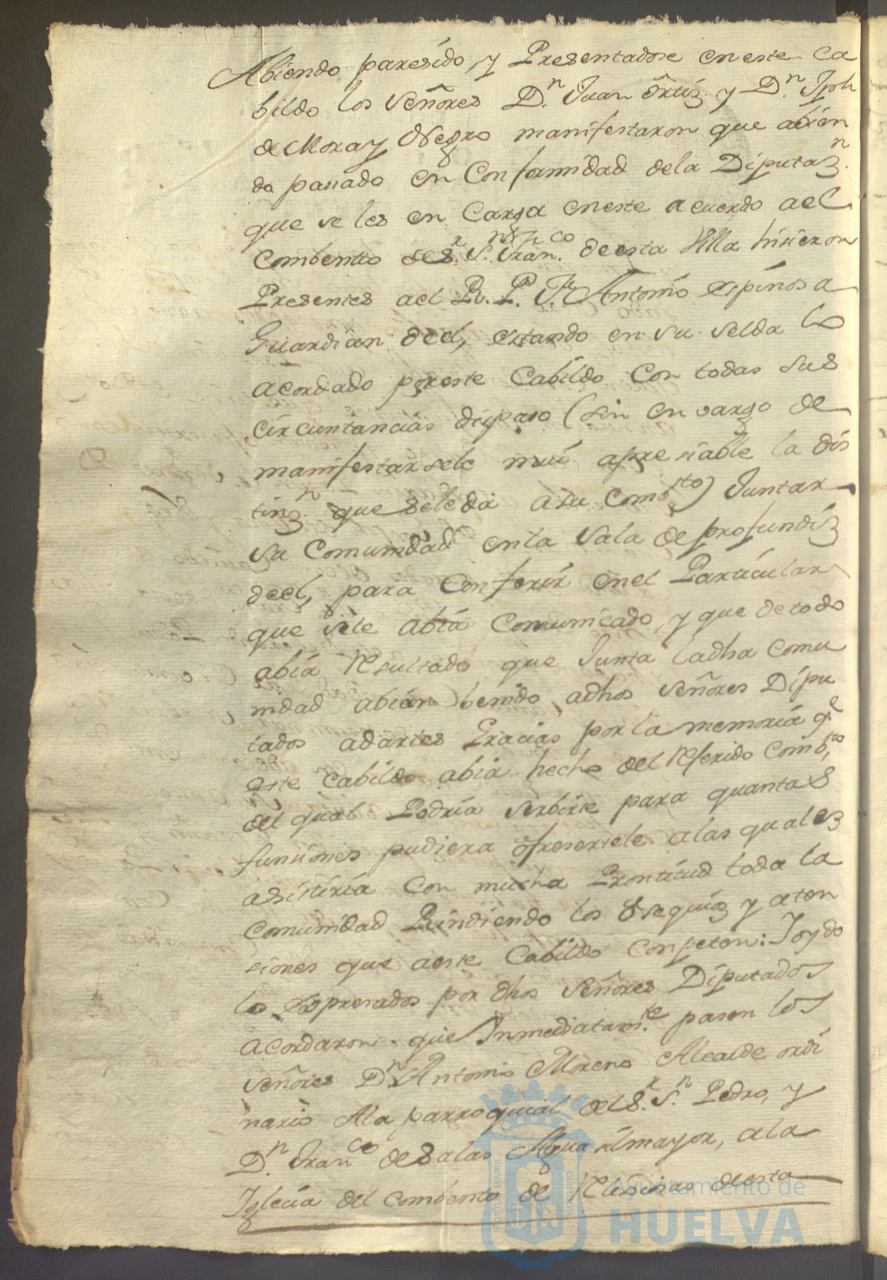 Abiendo paresido, y Presentadose en este ca
bildo los Señores D.n Juan Ortiz y D.n Jph
de Mora y Negro manifestaron que abien
do pasado en Conformidad de la Diputaz.n
que se les en Carga en este acuerdo a el
Combento de S.r S.n Fran.co de esta Villa hisieron
Presentes a el R. P. Fr Antonio espinosa
Guardian de el, estando en su selda lo
acordado por este Cabildo con todas sus
circuntancias dispuso (sin en vargo de
manifestarsele mui apresiable la dis
tinz.n que se le da a su Comb.to) Juntar
su Comunidad en la Sala de profundiz
de el, para Conferir en el Particular
que se le abia Comunicado, y que de todo
abia resultado que Junta la dha comu
nidad abian benido a dhos Señores Dipu
tados a darles Gracias por la memoria q.e
este Cabildo abia hecho del referido Comb.to
del qual Podria serbirse para quantas
funsiones pudiera ofresersele a las quales
asistiria con mucha Prontitud toda la
Comunidad Rindiendo los obsequios y aten
siones que a este Cabildo Conpeten: Y oydo
lo espresados por dhos Señores Diputados
acordaron que Inmediatam.te pasen los
señores D.n Antonio Moreno Alcalde ordi
nario A la parroquial del S.r S.n Pedro, y
D.n Fran.co de Salas Alguasil mayor, a la
Iglesia del combento de Relixiosas de esta
Ayuntamiento de
HUELVA